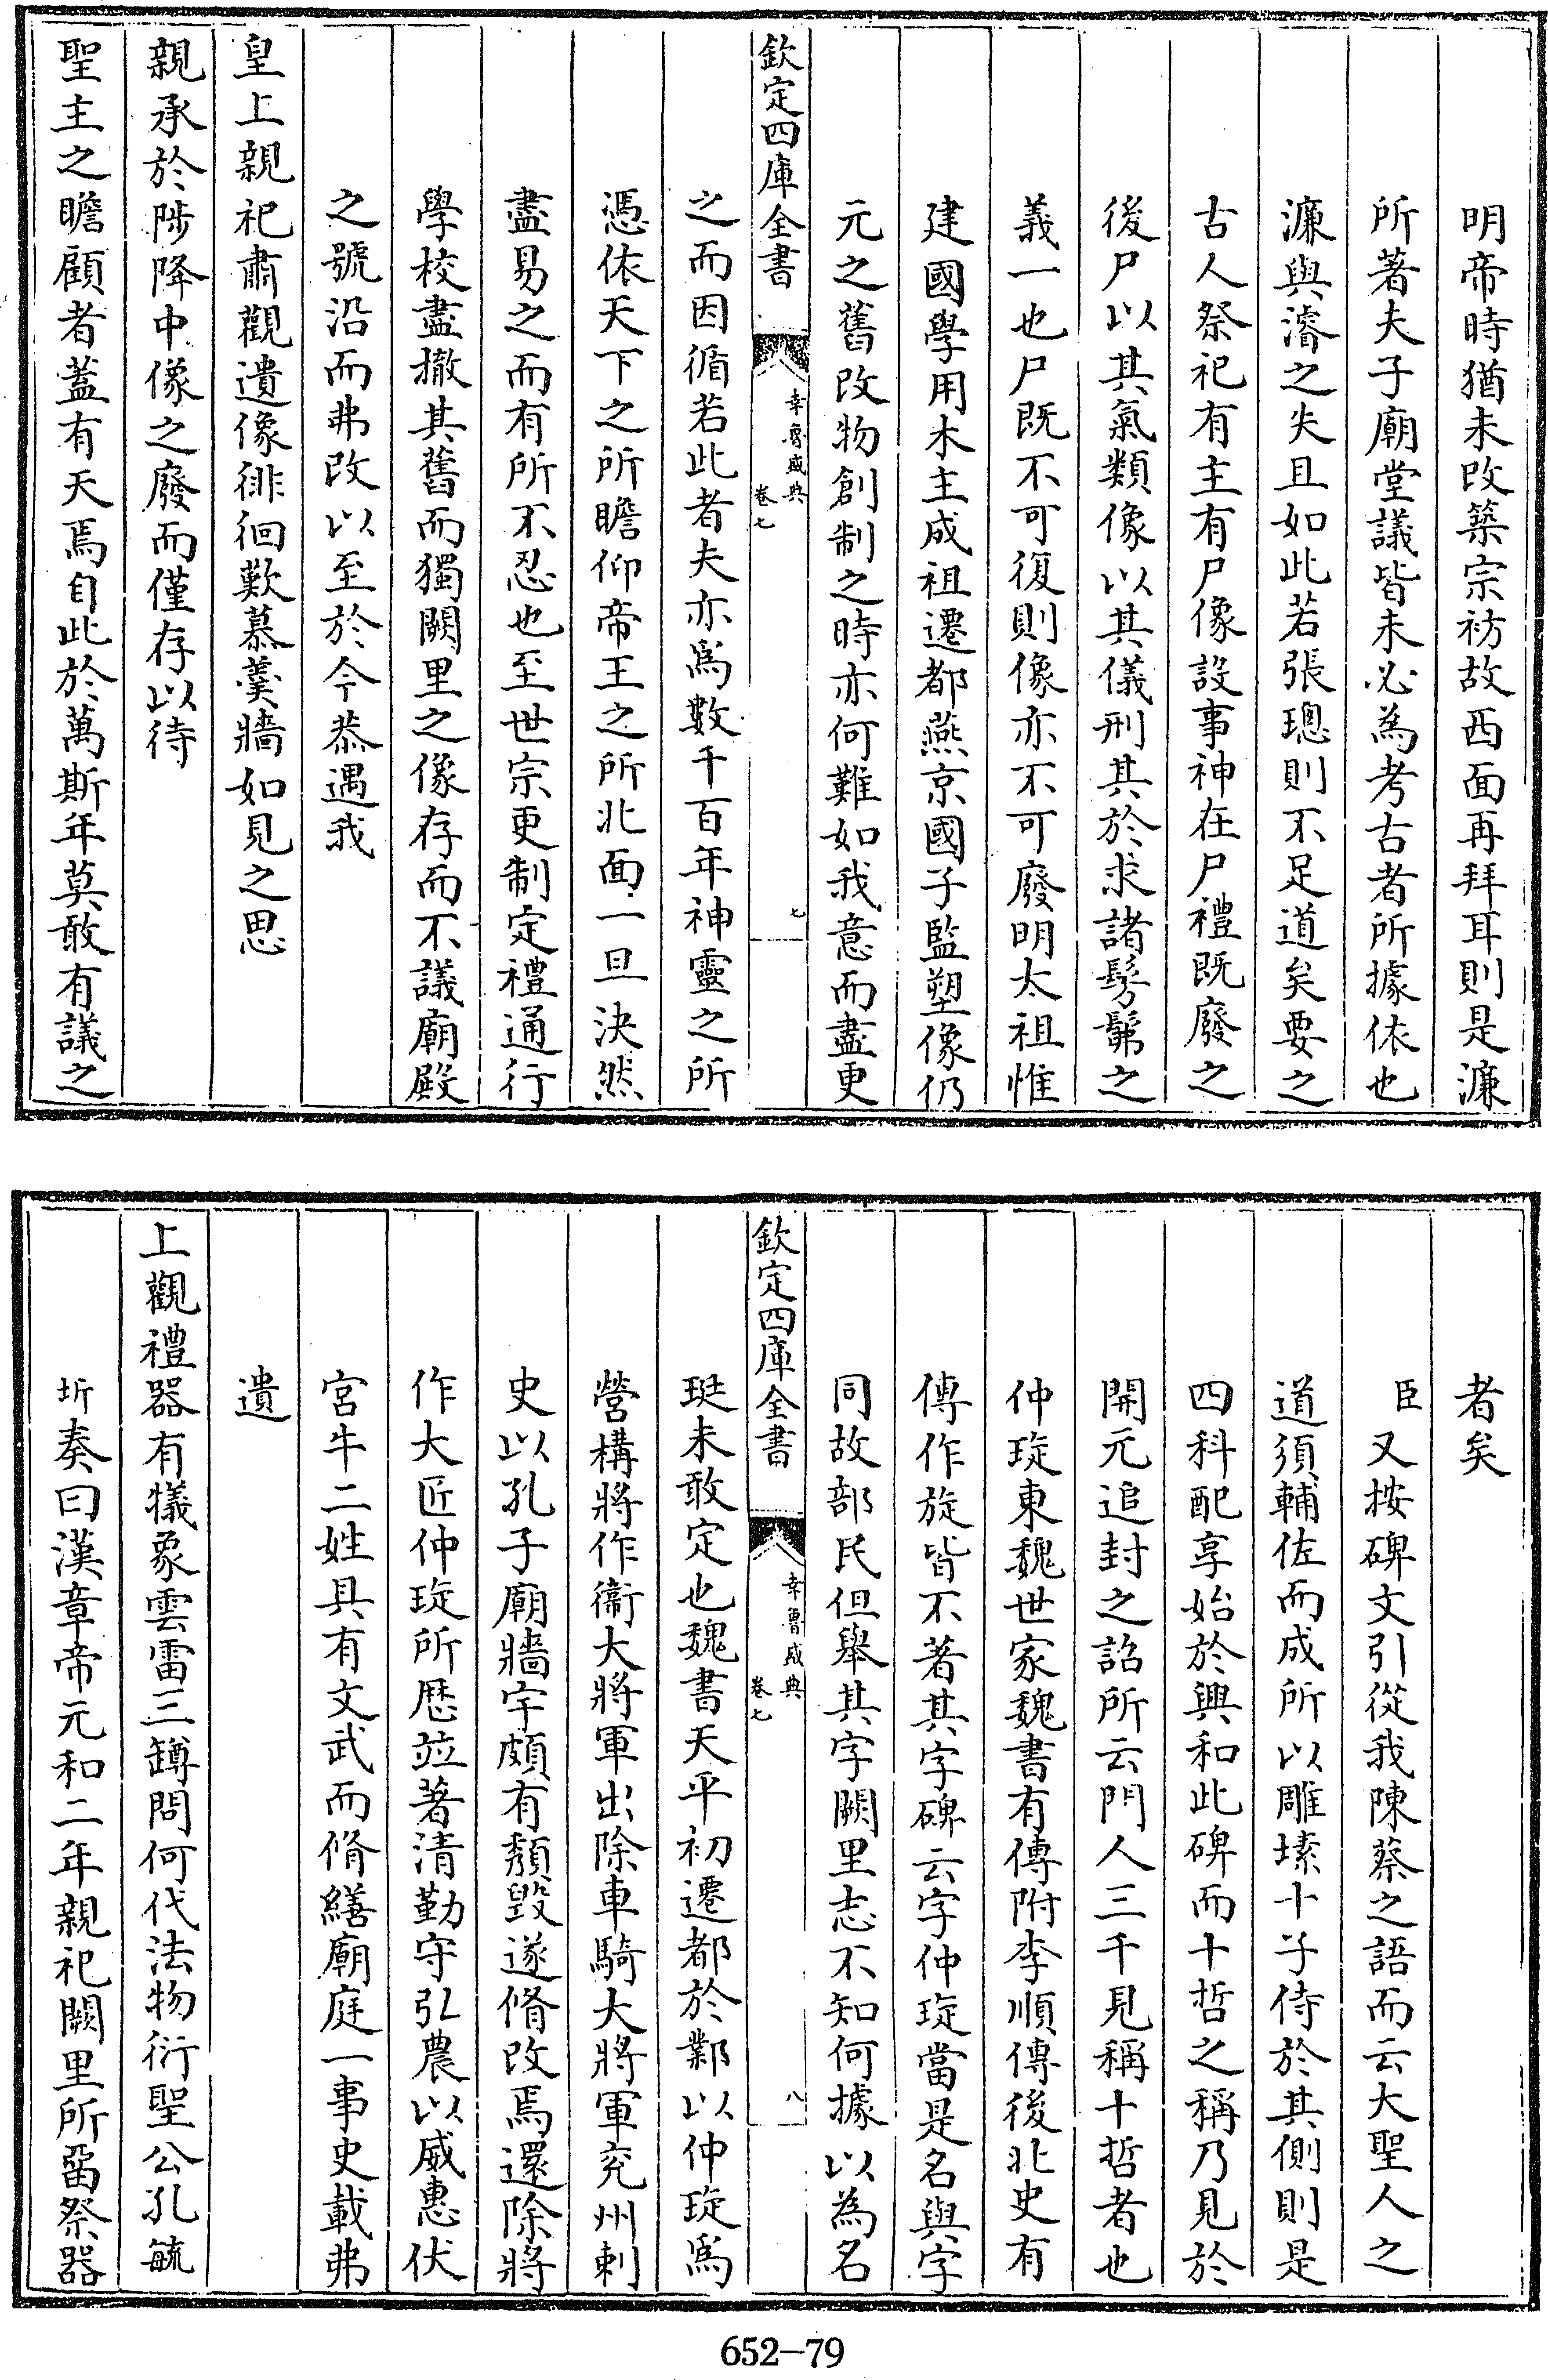 明帝時猶未改築宗祊故西面再拜耳則是濂
所著夫子廟堂議皆未必為考古者所據依也
濂與濬之失且如此若張璁則不足道矣要之
古人祭祀有主有尸像設事神在尸禮既廢之
後尸以其氣類像以其儀刑其於求諸髣髴之
義一也尸既不可復則像亦不可廢明太祖惟
建國學用木主成祖遷都燕京國子監塑像仍
元之舊改物創制之時亦何難如我意而盡更
欽定四庫全書
幸魯盛典
卷七
七
之而因循若此者夫亦為數千百年神靈之所
憑依天下之所瞻仰帝王之所北面一旦決然
盡易之而有所不忍也至世宗更制定禮通行
學校盡撤其舊而獨闕里之像存而不議廟殿
之號沿而弗改以至於今恭遇我
皇上親祀肅觀遺像徘徊歎慕羹牆如見之思
親承於陟降中像之廢而僅存以待
聖主之瞻顧者蓋有天焉自此於萬斯年莫敢有議之
者矣
臣又按碑文引從我陳蔡之語而云大聖人之
道須輔佐而成所以雕塐十子侍於其側則是
四科配享始於興和此碑而十哲之稱乃見於
開元追封之詔所云門人三千見稱十哲者也
仲琁東魏世家魏書有傳附李順傳後北史有
傳作旋皆不著其字碑云字仲琁當是名與字
同故部民但舉其字闕里志不知何據以為名
欽定四庫全書
幸魯盛典
卷七
八
珽未敢定也魏書天平初遷都於鄴以仲琁為
營構將作衞大將軍出除車騎大將軍兗州刺
史以孔子廟牆宇頗有頹毀遂脩改焉還除將
作大匠仲琁所歷並著清勤守弘農以威惠伏
宮牛二姓具有文武而脩繕廟庭一事史載弗
遺
上觀禮器有犧象雲雷三罇問何代法物衍聖公孔毓
圻奏曰漢章帝元和二年親祀闕里所留祭器
652-79